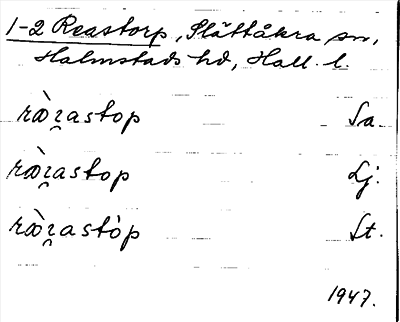 1-2 Reastorp, Slättåkra sn,
Halmstads hd, Hall. l.
rà̤ɀastop Sa.
rà̤ɀastop Lj.
rà̤ɀastȯ̀p St.
1947.